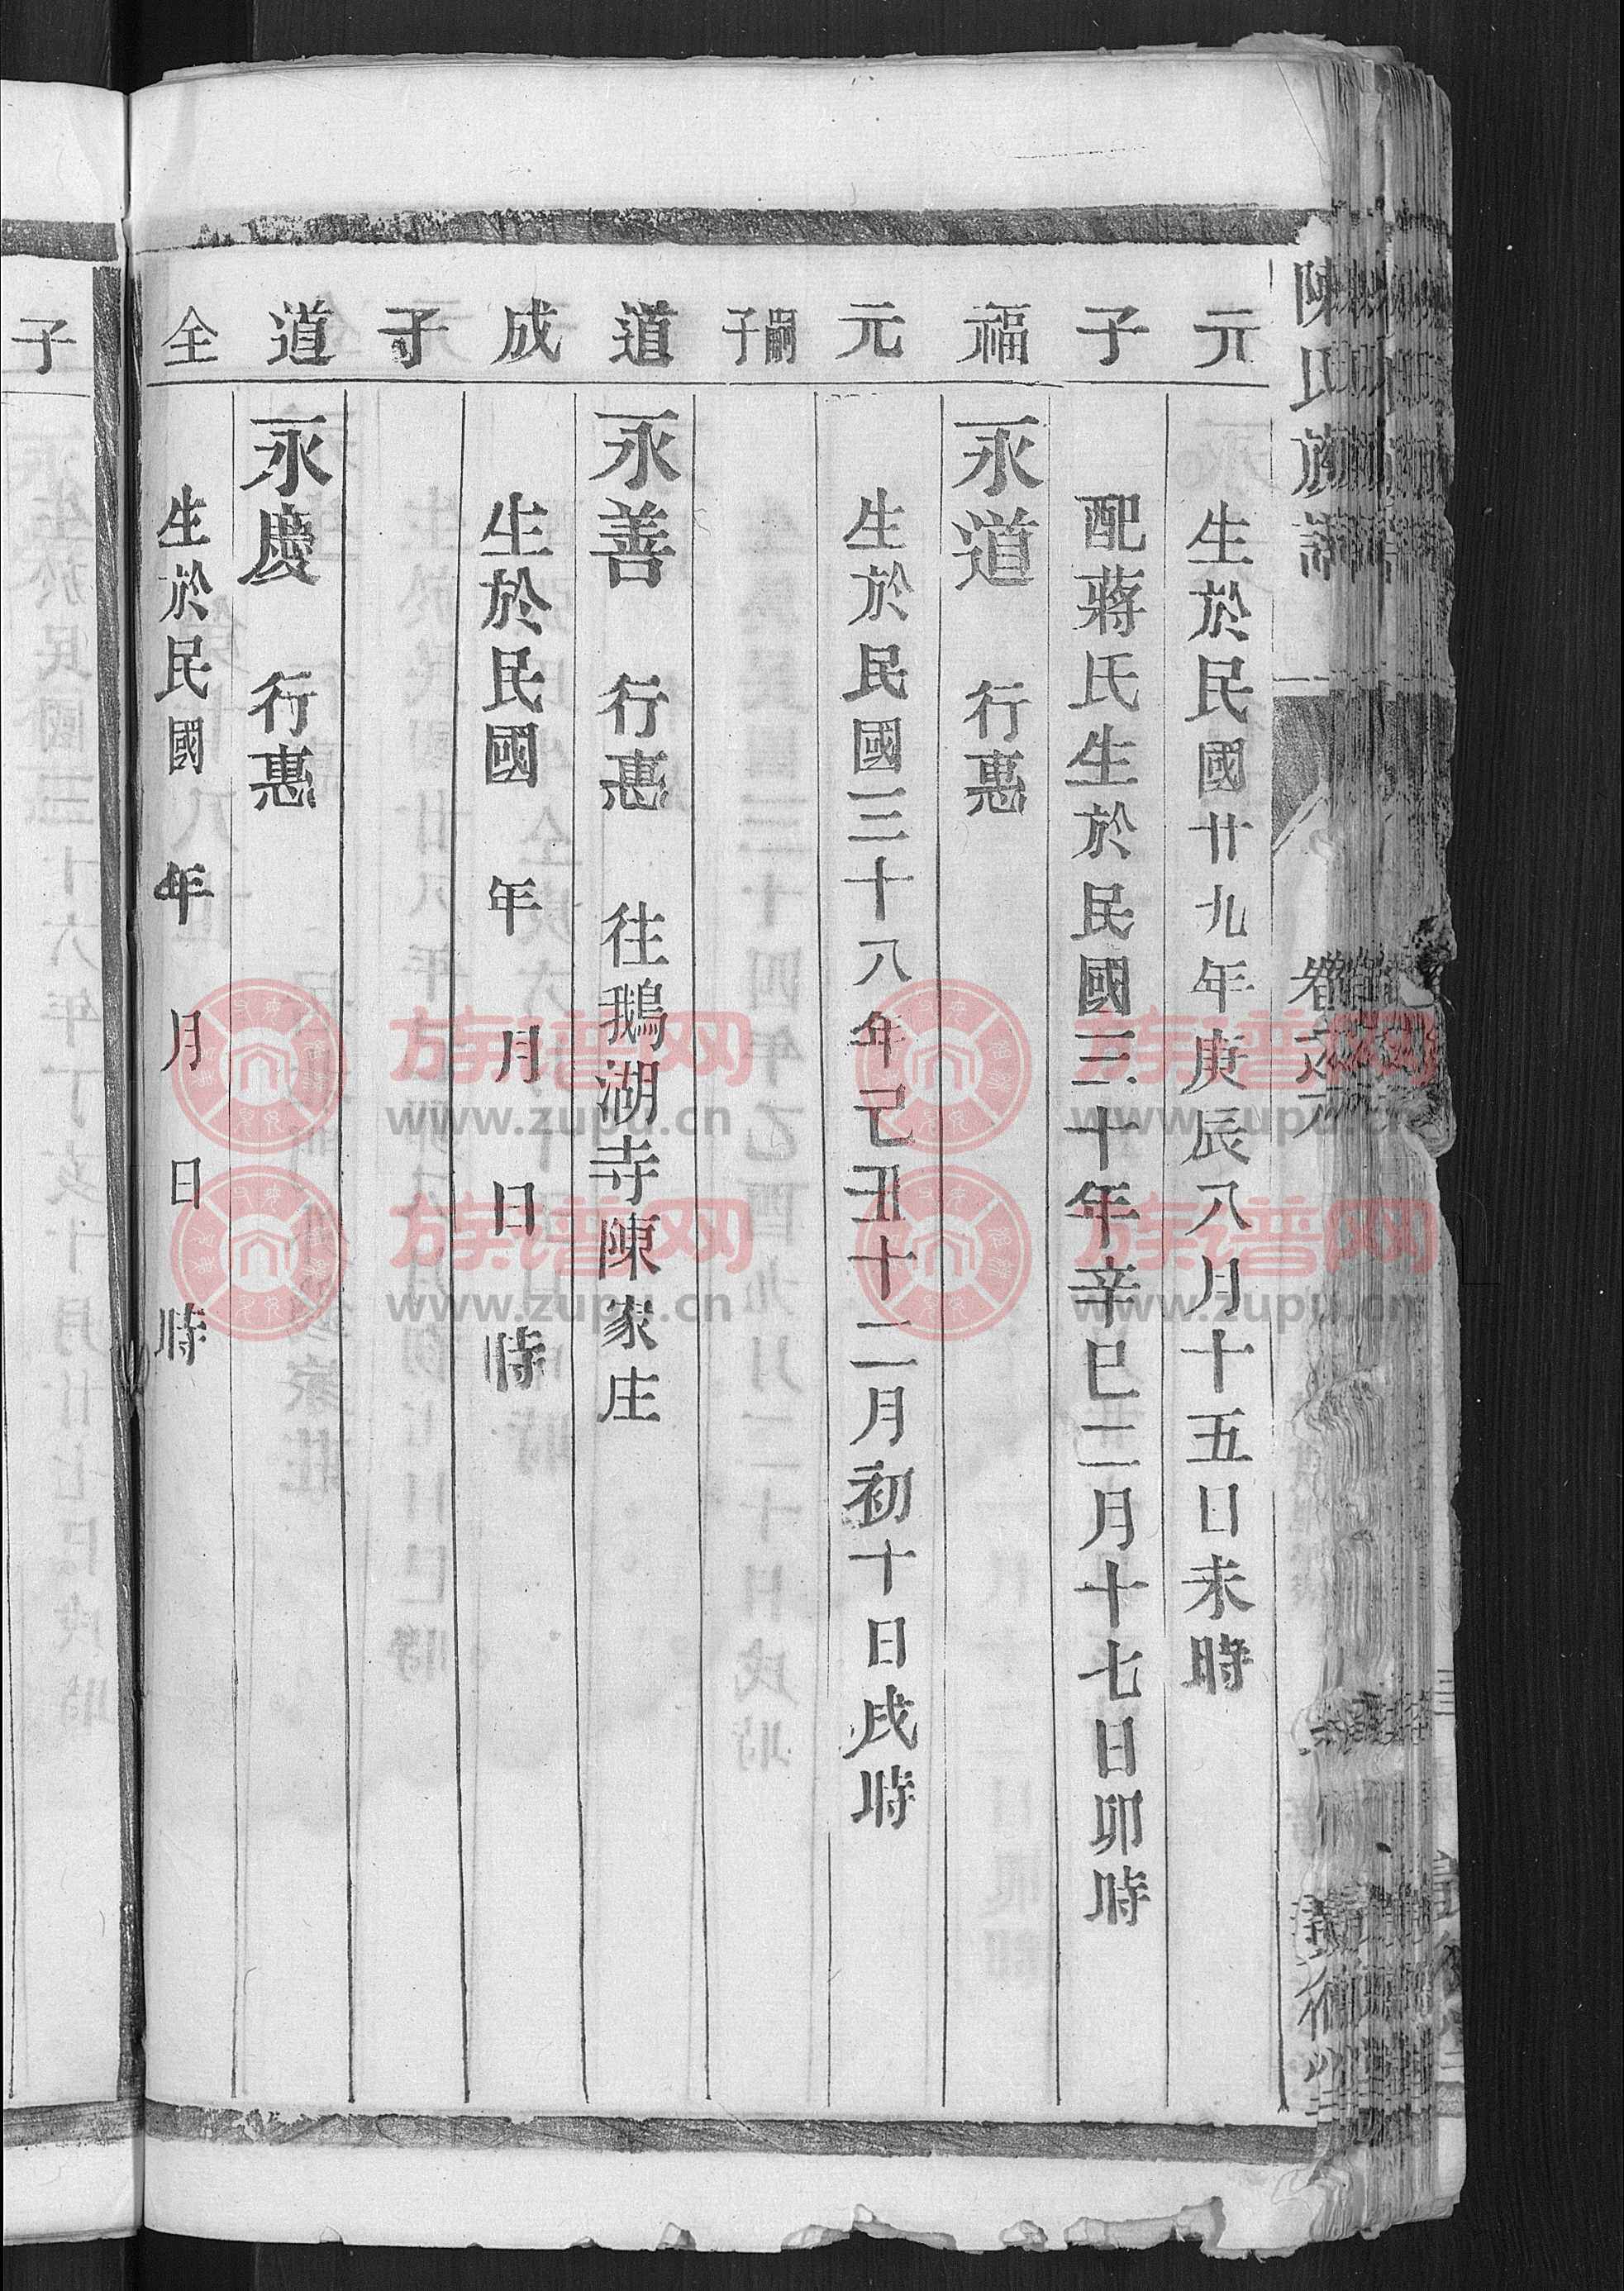 陳氏族譜
元
生於民國廿九年庚辰八月十五日未時
子
配蔣氏生於民國三十年辛巳二月十七日卯時
福
永道 行惠
元
生於民國三十八年己丑十二月初十日戌時
嗣子
道
永善 行惠 往鵝湖寺陳家庄
成
生於民國 年 月 日 時
子
道
永慶 行惠
全
生於民國 年 月 日 時
子
族谱网
www.zupu.cn
族谱网
www.zupu.cn
族谱网
www.zupu.cn
族谱网
www.zupu.cn